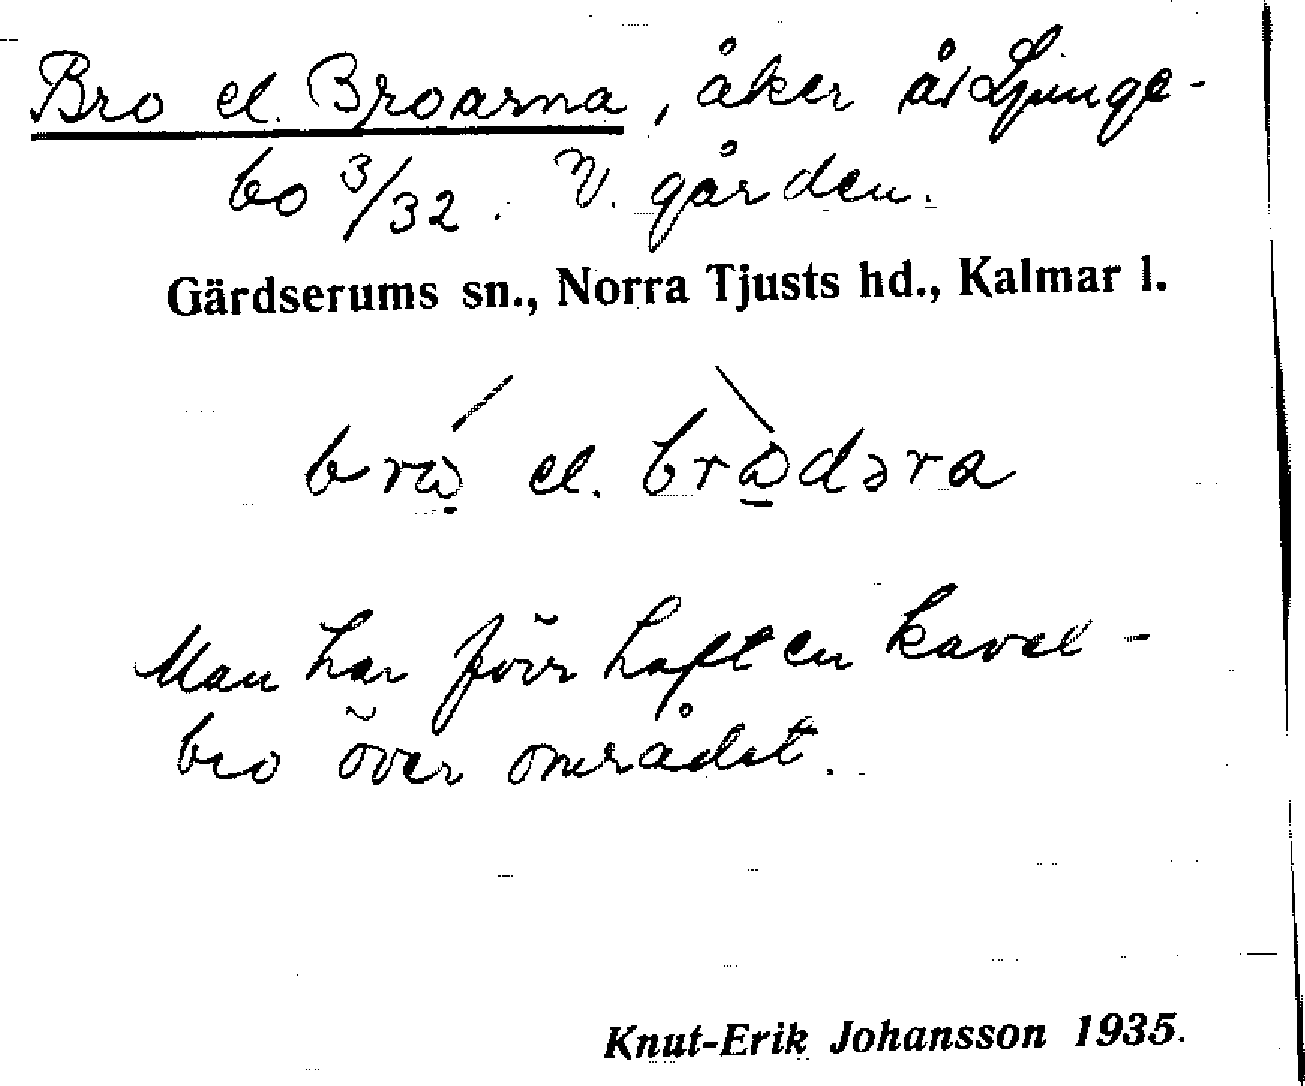 Bro el. Broarna, åker å Ljunge-
bo 3/32. V. gården.
Gärdserums sn., Norra Tjusts hd., Kalmar l.
el.
Man har förr haft en kavel-
bro över området.
Knut-Erik Johansson 1935.